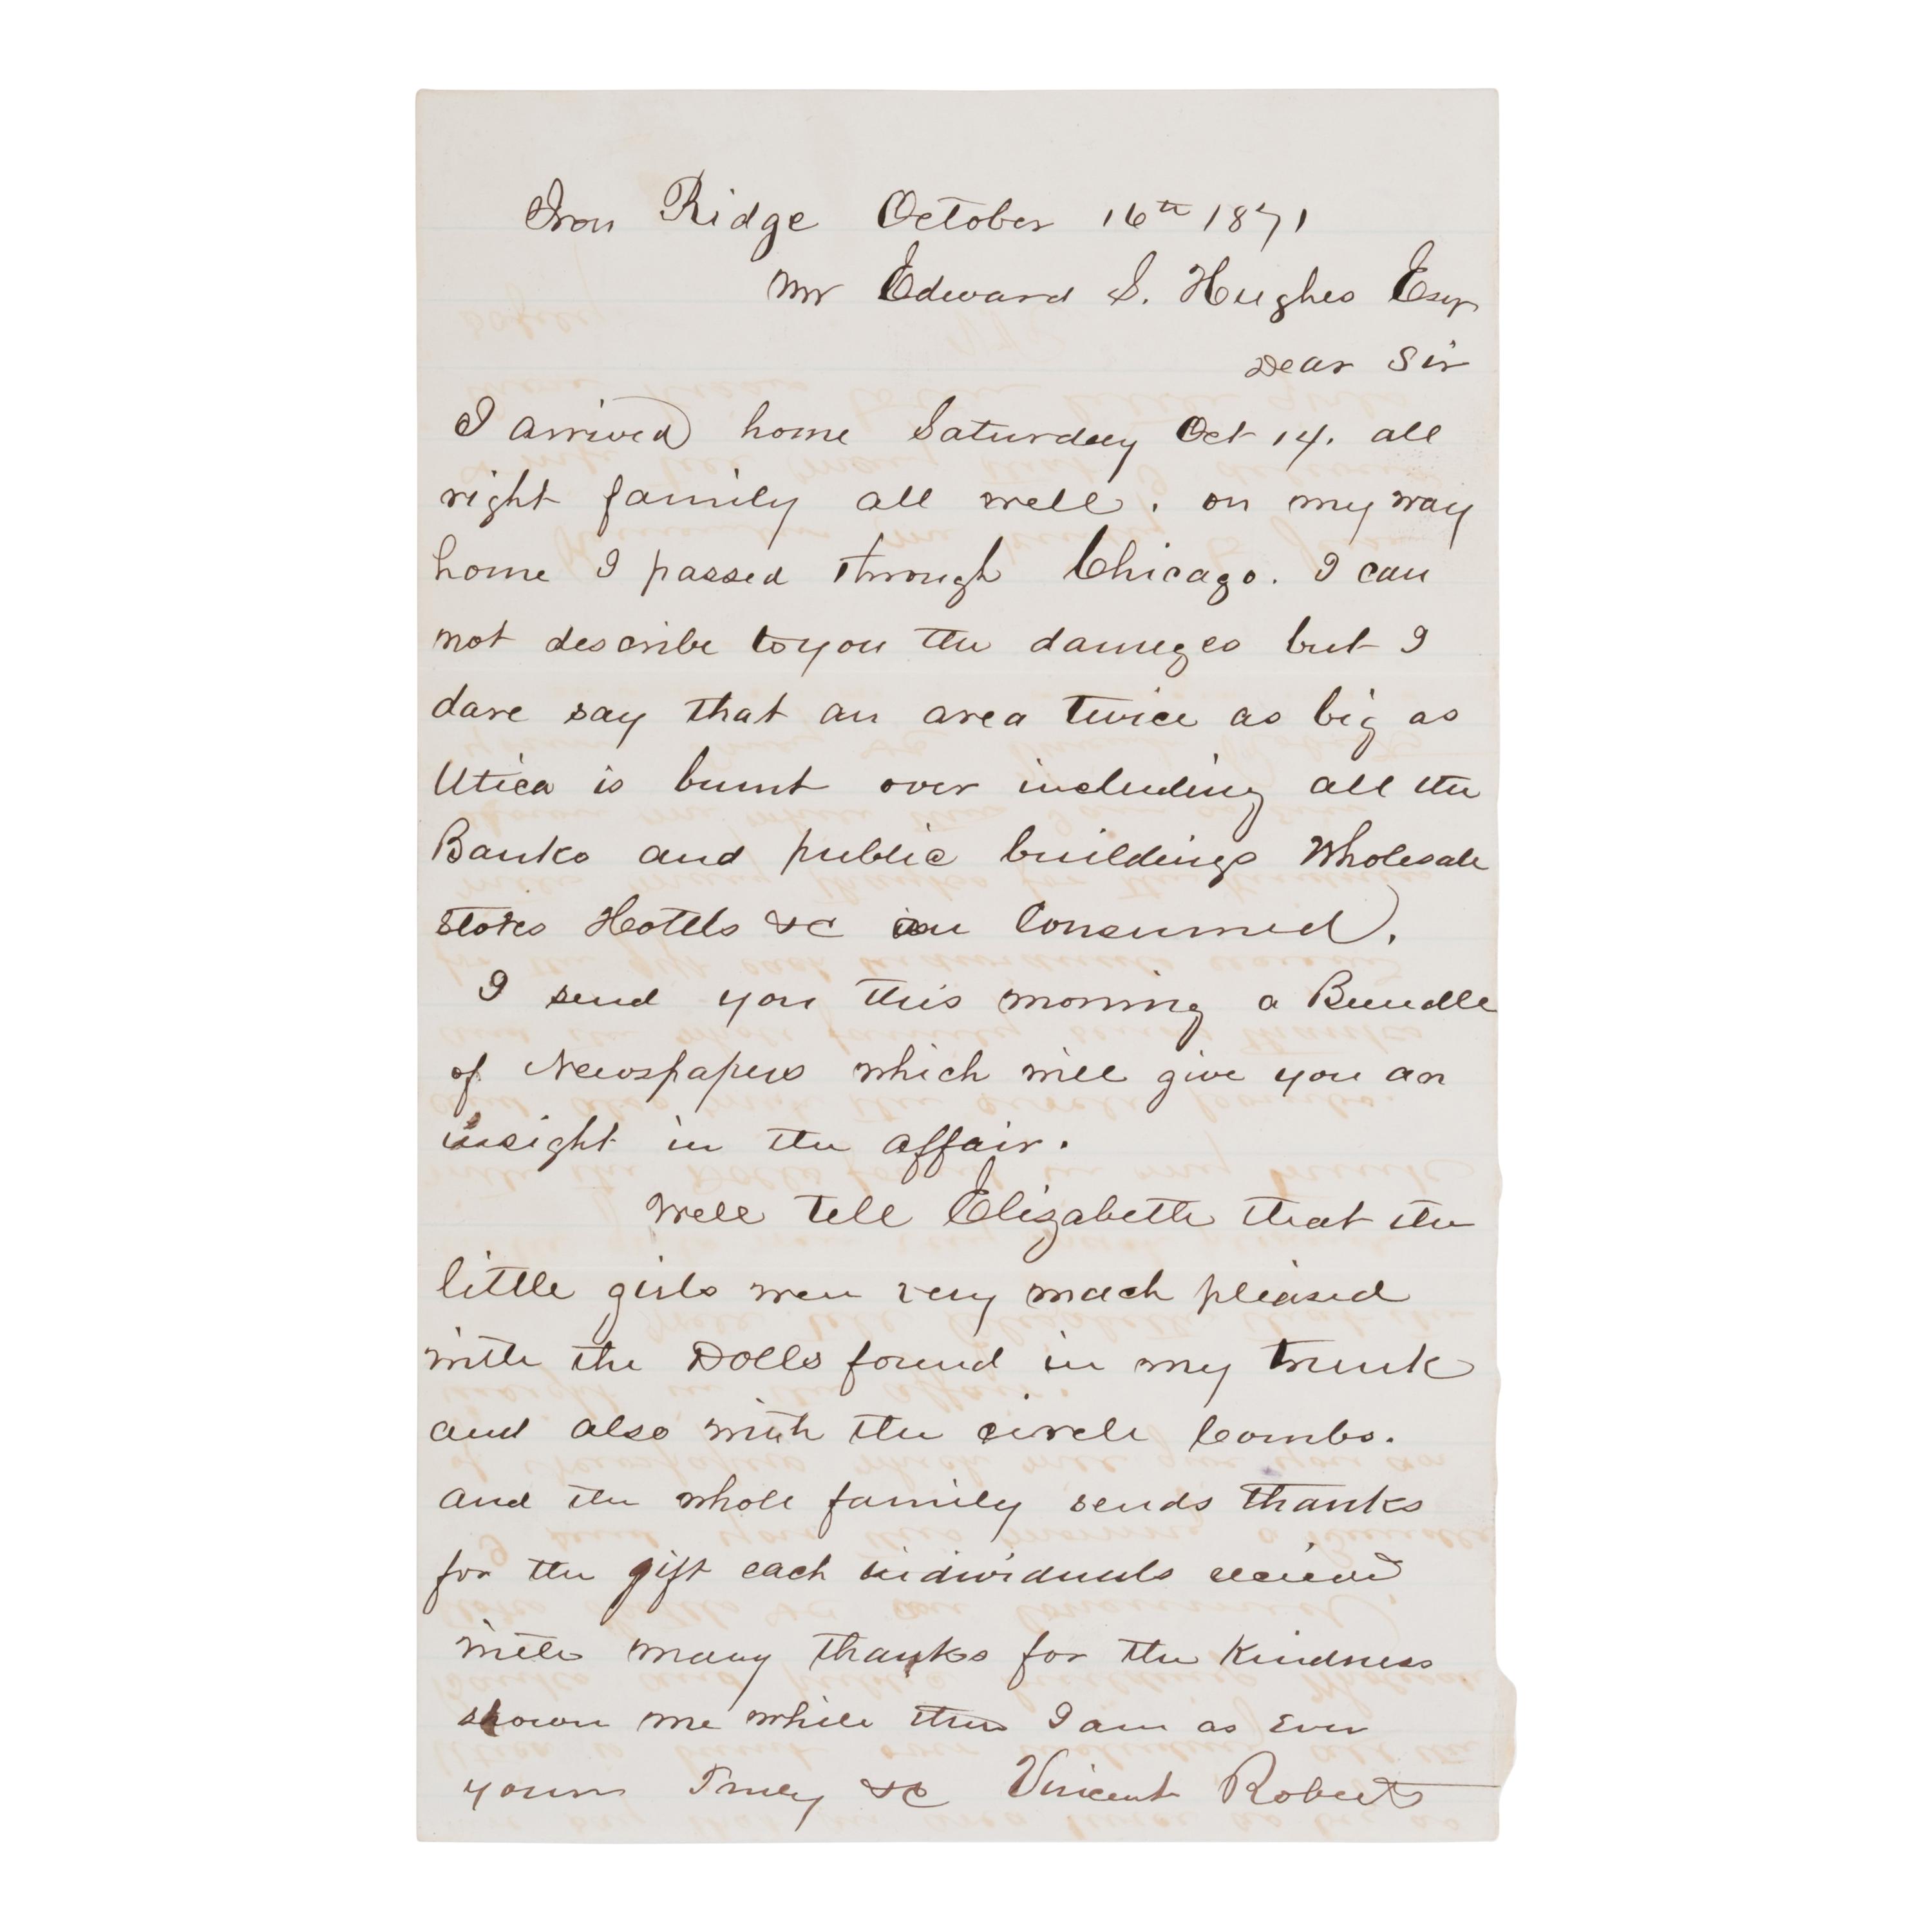 Iron Ridge October 16th 1871
Mr Edward S. Hughes Esqr
Dear Sir
I arrived home Saturday Oct 14. all
right family all well. on my way
home I passed through Chicago. I can
not describe to you the dameges but I
dare say that an area twice as big as
Utica is burnt over including all the
Banks and public buildings Wholesale
stores Hotels &c are Consumed.
I send you this morning a Bundle
of Newspapers which will give you an
insight in the affair.
Well tell Elizabeth that the
little girls were very much pleased
with the Dolls found in my trunk
and also with the circle Combs.
and the whole family sends thanks
for the gift each individuals recieved
with many thanks for the Kindness
shown me while there I am as Ever
yours Truly &c Vincent Roberts